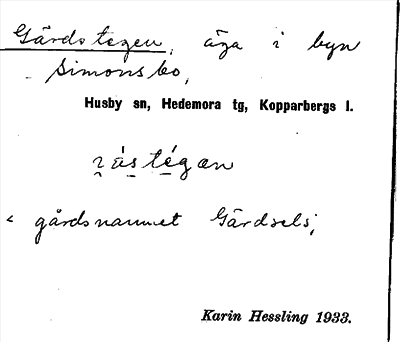 Gärdstegen, äga i byn
Simonsbo,
Husby sn, Hedemora tg, Kopparbergs l.
< gårdsnamnet Gärdsels;
Karin Hessling 1933.